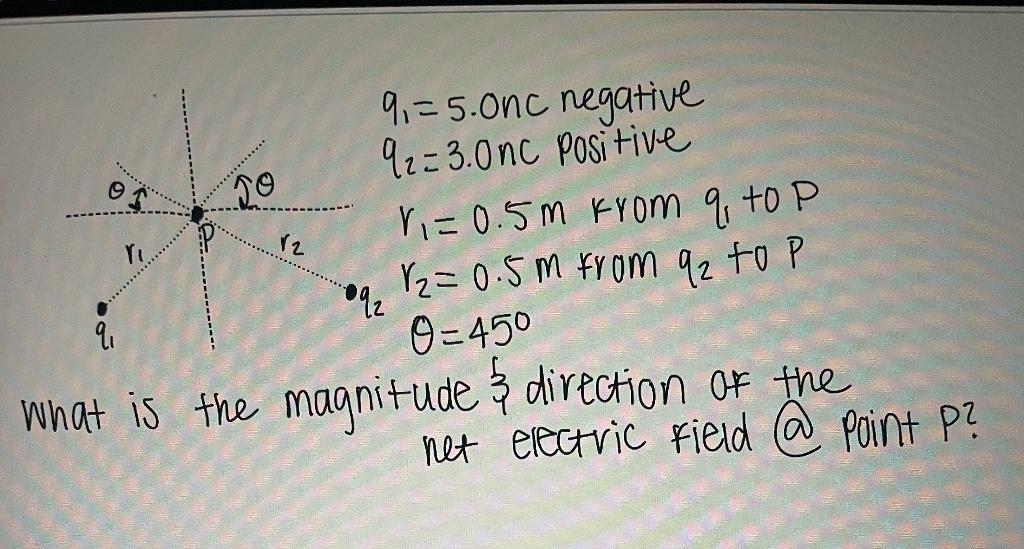 q₁ = 5.0nc negative
q₂ = 3.0nc positive
r₁ = 0.5m from q₁ to P
r₂ = 0.5m from q₂ to P
θ = 45°
θ
θ
P
r₁
r₂
q₁
q₂
What is the magnitude & direction of the
net electric field @ point P?